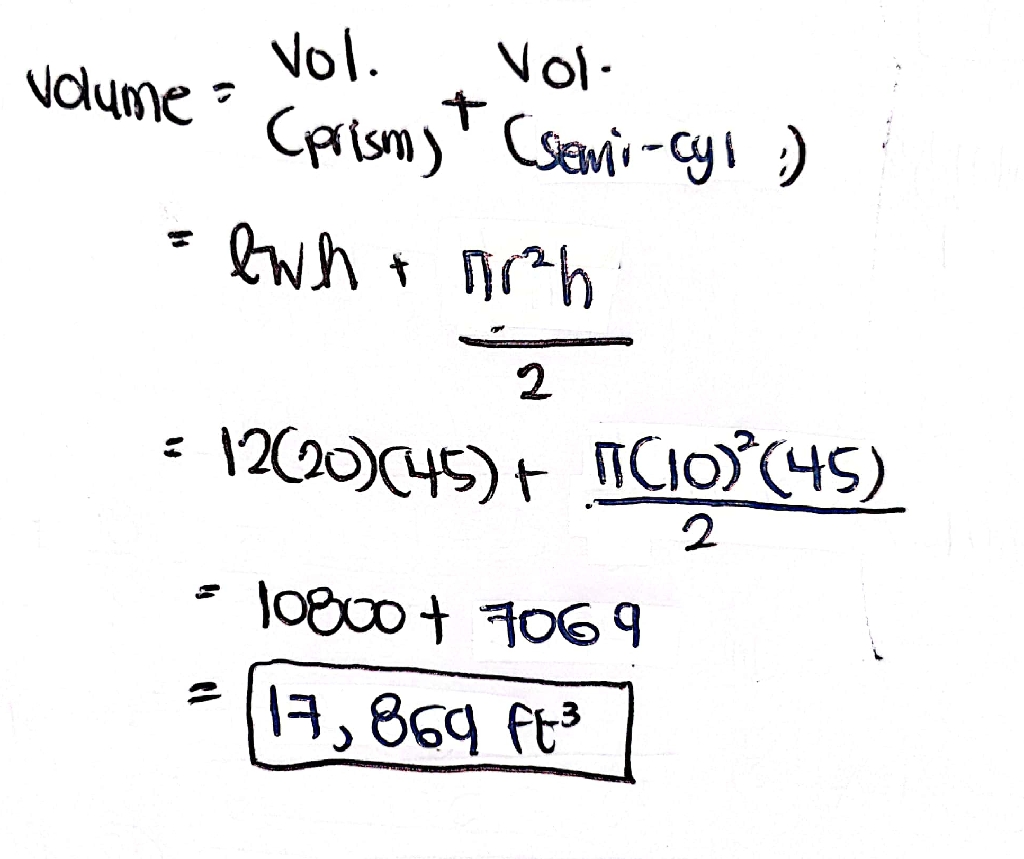 Volume = Vol. (prism) + Vol. (semi-cyl.)
= lwh + πr²h / 2
= 12(20)(45) + π(10)²(45) / 2
= 10800 + 7069
= 17,869 ft³